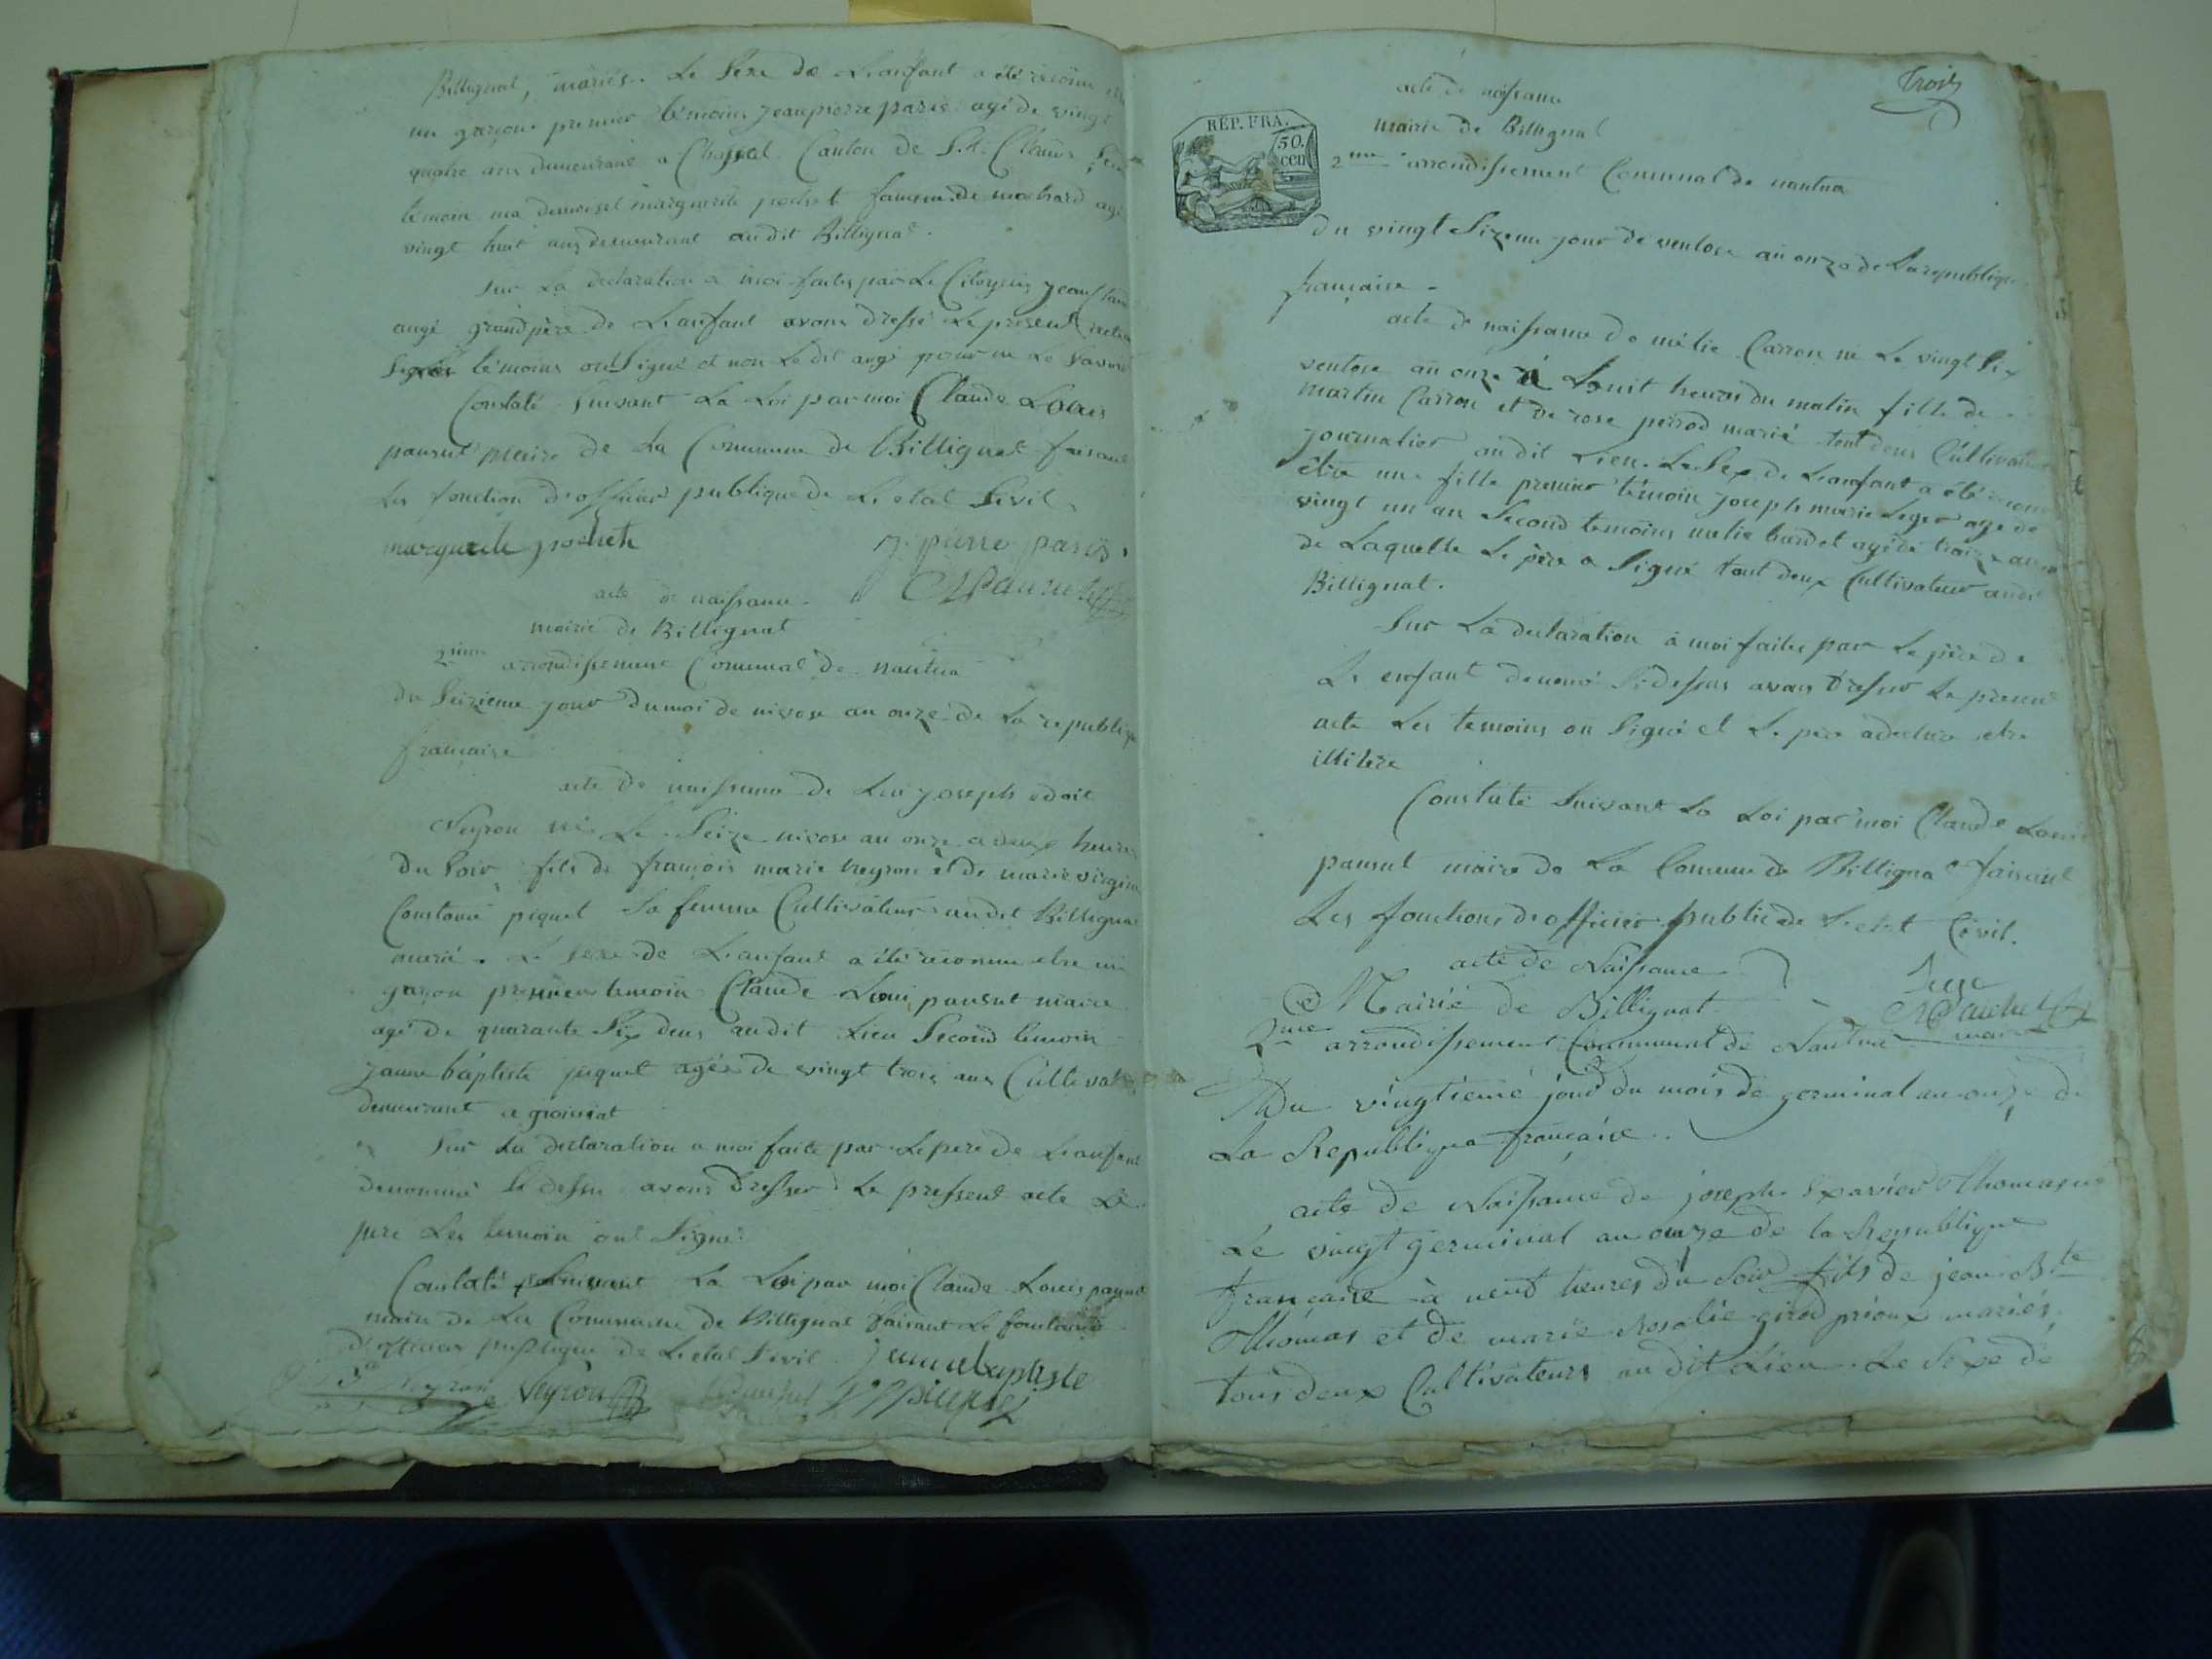 Billignat, mariés. Le Sexe de Lanfant a été reconu
un garçon premier témoins jean pierre paris agé de vingt
quatre ans demeurant a Chassal Canton de St. Claude
témoin ma demoisel marguerite pochet agé
vingt huit ans demeurant audit Billignat.
Sur La declaration a moi faites par Le Citoyens jean Claude
augé grand père de Lanfant avons dressé Le présent acte
témoins on Signé et non Le dit augé pour ne Le Savoir
Constaté Suivant La Loi par moi Claude Louis
pansut maire de La Commune de Billignat faisant
Les fonction d'officier publique de Letat Sivil
marguerite pochet j. pierre paris
acte de naissance
mairie de Billignat
2ieme arrondissement Comunal de nantua
du Seizieme jour du moi de nivose an onze de La republique
française
acte de naissance de Leu joseph
Neyron né Le Seize nivose an onze a heures
du Soir fils de françois marie neyron et de marie virgine
piquet Sa femme Cultivateur audit Billignat
marié. Le sexe de Lanfant a été reconnu etre un
garçon premier temoin Claude Loui pansut maire
agé de quarante Six audit Lieu Second temoin
janne baptiste piquet agée de vingt trois ans Cultivat
demeurant a groissiat
Sur La declaration a moi faite par Le pere de Lanfant
denommé Si dessu avons dresser Le pressent acte Le
pere Les temoin ont Signé
Constaté Suivant La Loi par moi Claude Louis pansut
maire de La Commune de Billignat faisant Le fonctions
d'officier publique de Letat Sivil janne baptiste
neyron Neyron piquet
Trois
acte de naissance
mairie de Billignat
RÉP. FRA.
50.
cen
2me arrondissement Comunal de nantua
du vingt Sixeme jour de ventose an onze de La republique
française.
acte de naissance de mélie Carron né Le vingt Six
ventose an onze à huit heures du matin fille de
martin Carron et de rose perrod marié tout deux Cultivateur
journalier audit Lieu. Le Sex de Lanfant a été reconu
être une fille premier témoin joseph marie Leger age de
vingt un an Second temoins melie burdet agé de traize ans
de Laquelle Le père a Signé tout deux Cultivateur audit
Billignat.
Sur La declaration à moi faites par Le père de
Le enfant denomé Sidessus avons dresser Le present
acte Les temoins on Signé et Le père a declare etre
illitere
Constaté Suivant La Loi par moi Claude Louis
pansut maire de La Comune de Billignat faisant
Les fonctions d'officier public de L'etat Civil.
acte de Naissance
Mairie de Billignat
2me arrondissement Communal de Nantua maire
Du vingtieme jour du mois de germinal an onze de
La Republique française.
acte de Naissance de joseph Xxavier Thomas né
Le vingt germinal an onze de la Republique
française à neuf heures du Soir fils de jean Bte
Thomas et de marie Rosalie girod prioux mariés,
tous deux Cultivateurs au dit Lieu. Le Sexe de